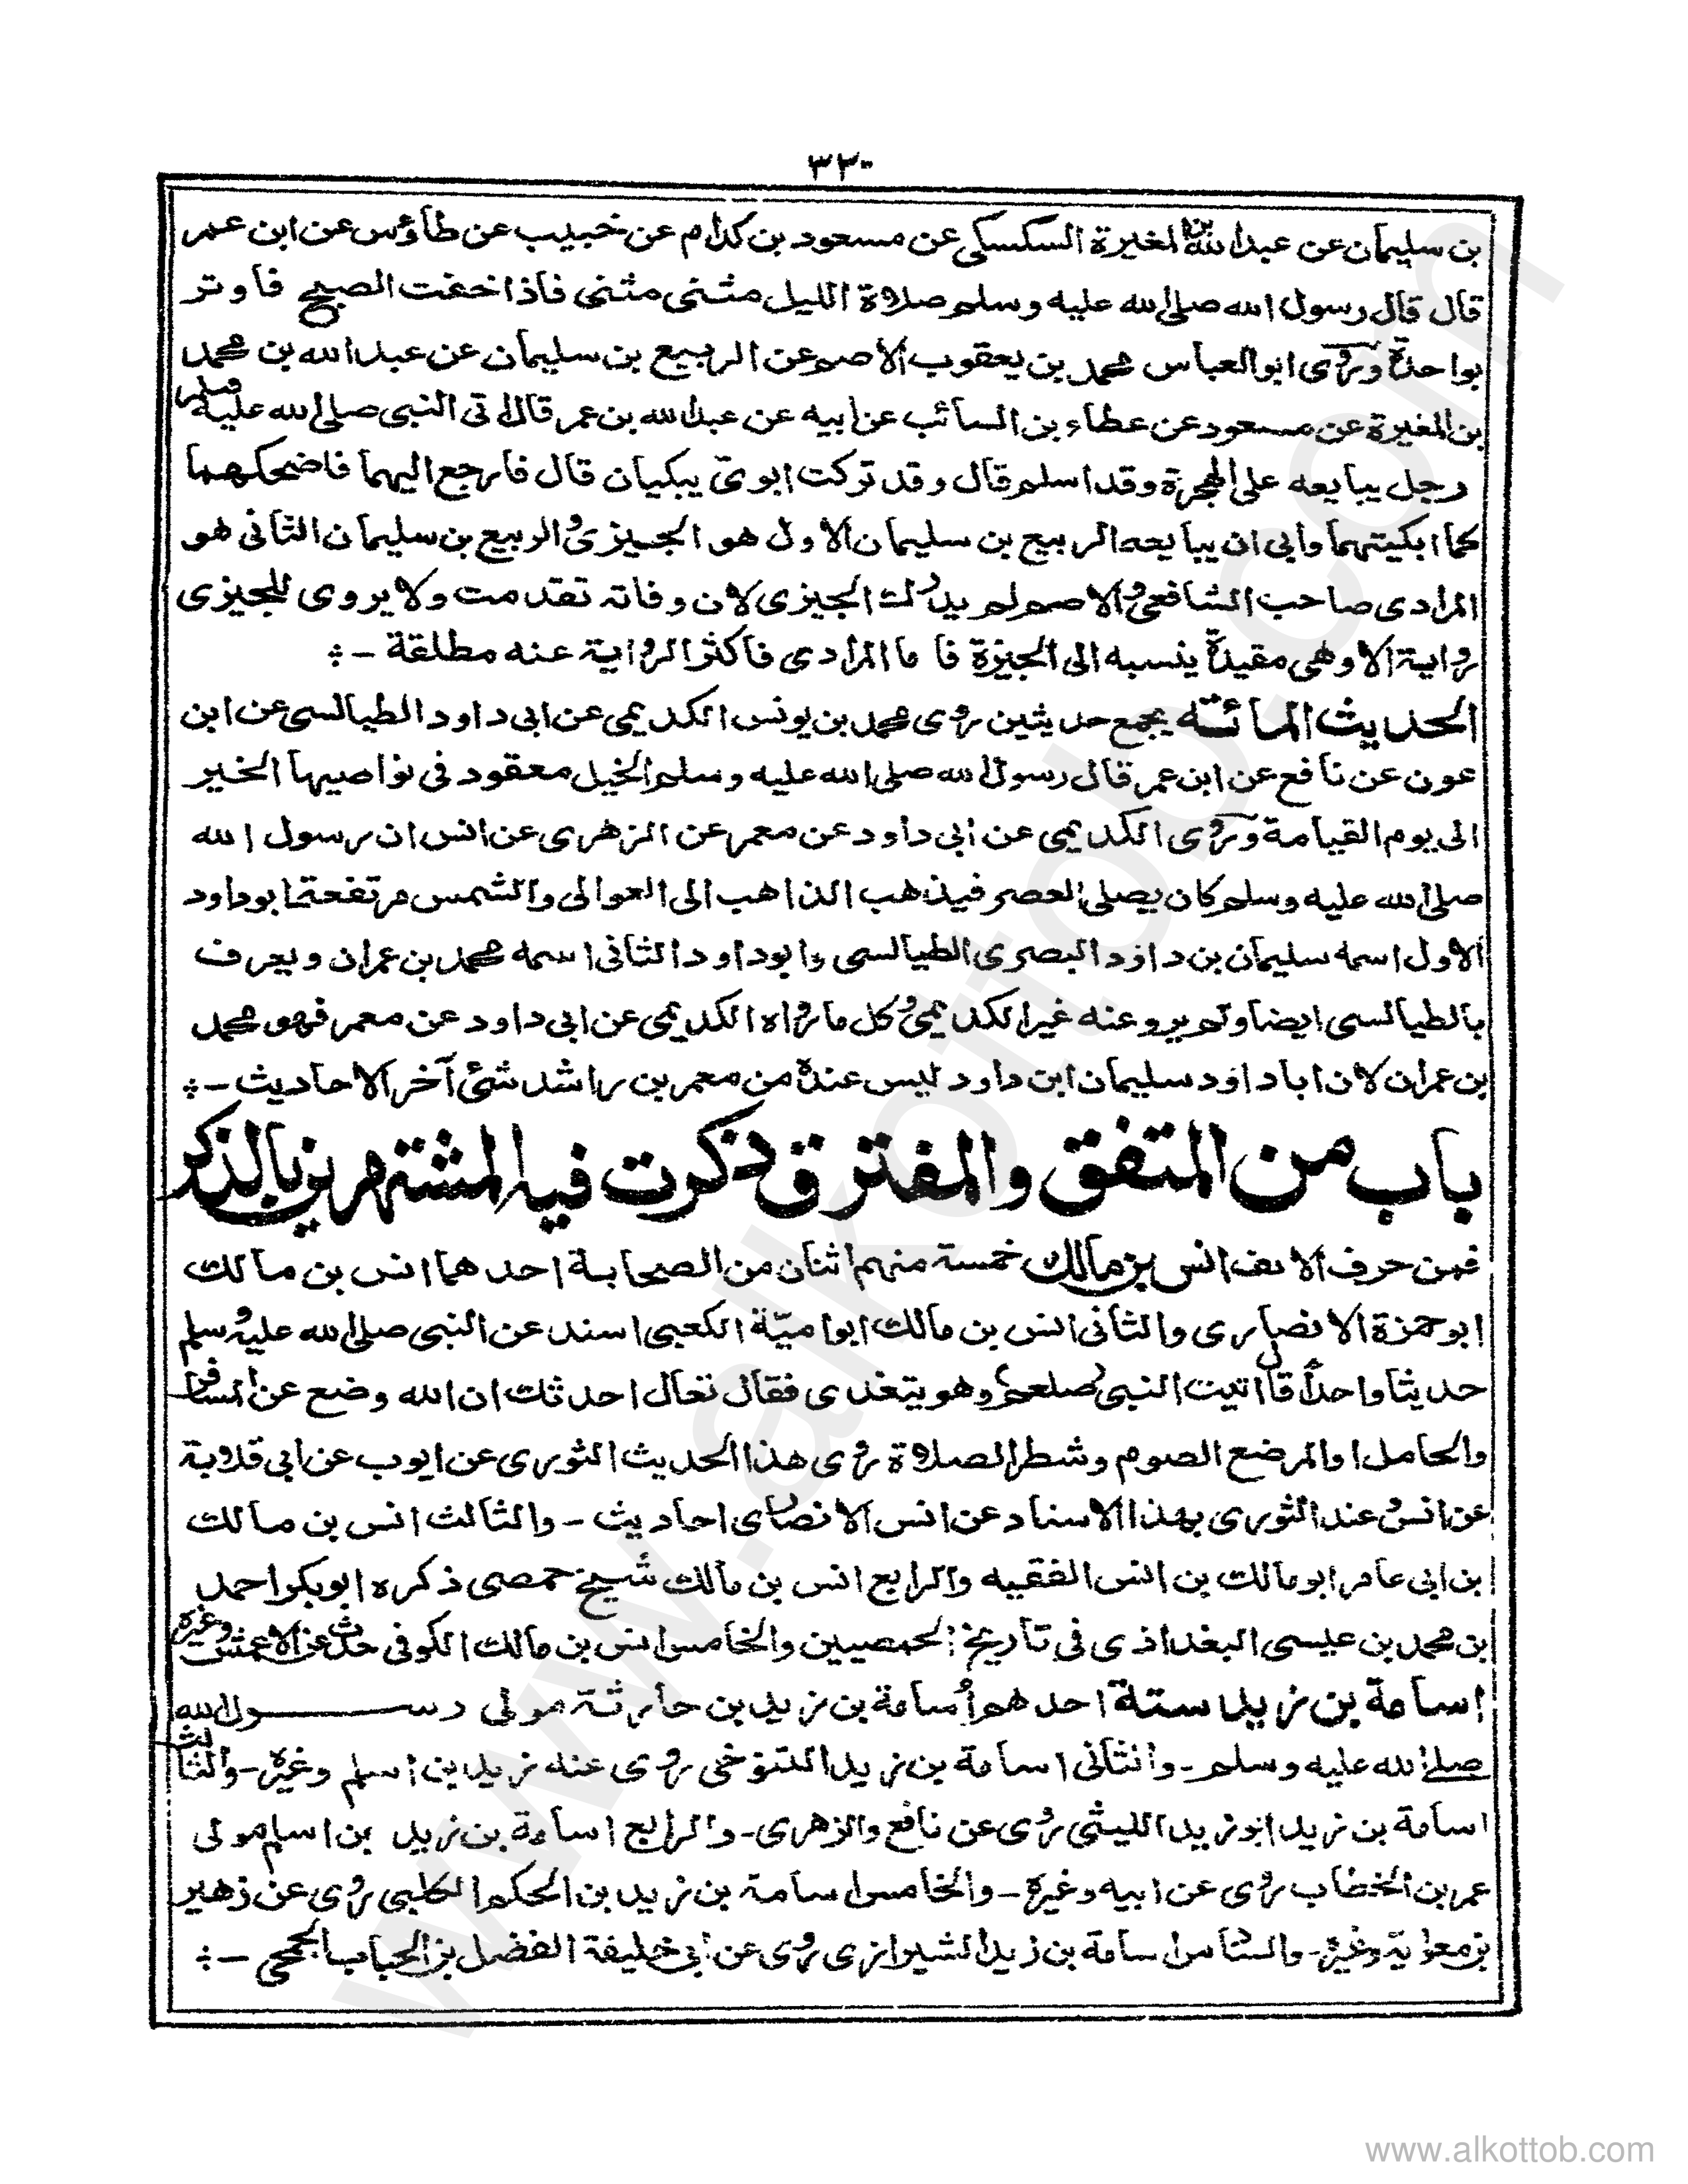 ٣٢٠
بن سليمان عن عبد الله بن المغيرة السكسكى عن مسعود بن كدام عن خبيب عن طاؤس عن ابن عمر
قال قال رسول الله صلى الله عليه وسلم صلاة الليل مثنى مثنى فاذا خفت الصبح فاوتر
بواحدة وروى ابو العباس محمد بن يعقوب الاصم عن الربيع بن سليمان عن عبد الله بن محمد
بن المغيرة عن مسعود عن عطاء بن السائب عن ابيه عن عبد الله بن عمر قال اتى النبى صلى الله عليه وسلم
رجل يبايعه على الهجرة وقد اسلم قال وقد تركت ابوىّ يبكيان قال فارجع اليهما فاضحكهما
كما ابكيتهما وابى ان يبايعه الربيع بن سليمان الاول هو الجيزى والربيع بن سليمان الثانى هو
المرادى صاحب الشافعى والاصم لم يدرك الجيزى لان وفاته تقدمت ولا يروى للجيزى
رواية الا وهى مقيدة ينسبه الى الجيزة فاما المرادى فاكثر الرواية عنه مطلقة -
الحديث المائة يجمع حديثين روى محمد بن يونس الكديمى عن ابى داود الطيالسى عن ابن
عون عن نافع عن ابن عمر قال رسول الله صلى الله عليه وسلم الخيل معقود فى نواصيها الخير
الى يوم القيامة وروى الكديمى عن ابى داود عن معمر عن الزهرى عن انس ان رسول الله
صلى الله عليه وسلم كان يصلى العصر فيذهب الذاهب الى العوالى والشمس مرتفعة ابو داود
الاول اسمه سليمان بن داود البصرى الطيالسى وابو داود الثانى اسمه محمد بن عمران ويعرف
بالطيالسى ايضا ولم يرو عنه غير الكديمى وكل ما رواه الكديمى عن ابى داود عن معمر فهو محمد
بن عمران لان ابا داود سليمان ابن داود ليس عنده من معمر بن راشد شئ آخر الاحاديث -
باب من المتفق والمفترق ذكرت فيه المشتهرين بالذكر
فمن حرف الالف انس بن مالك خمسة منهم اثنان من الصحابة احدهما انس بن مالك
ابو حمزة الانصارى والثانى انس بن مالك ابو اميّة الكعبى اسند عن النبى صلى الله عليه وسلم
حديثا واحدًا قال اتيت النبى صلعم وهو يتغدى فقال تعال احدثك ان الله وضع عن المسافر
والحامل والمرضع الصوم وشطر الصلاة روى هذا الحديث الثورى عن ايوب عن ابى قلابة
عن انس وعند الثورى بهذا الاسناد عن انس الانصارى احاديث - والثالث انس بن مالك
بن ابى عامر ابو مالك بن انس الفقيه والرابع انس بن مالك شيخ حمصى ذكره ابو بكر احمد
بن محمد بن عيسى البغدادى فى تاريخ الحمصيين والخامس انس بن مالك الكوفى حدث عن الاعمش وغيره
اسامة بن زيد ستة احدهم اُسامة بن زيد بن حارثة مولى رسول الله
صلى الله عليه وسلم - والثانى اسامة بن زيد التنوخى روى عنه زيد بن اسلم وغيره - والثالث
اسامة بن زيد ابو زيد الليثى روى عن نافع والزهرى - والرابع اسامة بن زيد بن اسلم مولى
عمر بن الخطاب روى عن ابيه وغيره - والخامس اسامة بن زيد بن الحكم الكلبى روى عن زهير
بن معوية وغيره - والسادس اسامة بن زيد الشيرازى روى عن ابى خليفة الفضل بن الحباب الجمحى -
www.alkottob.com
www.alkottob.com